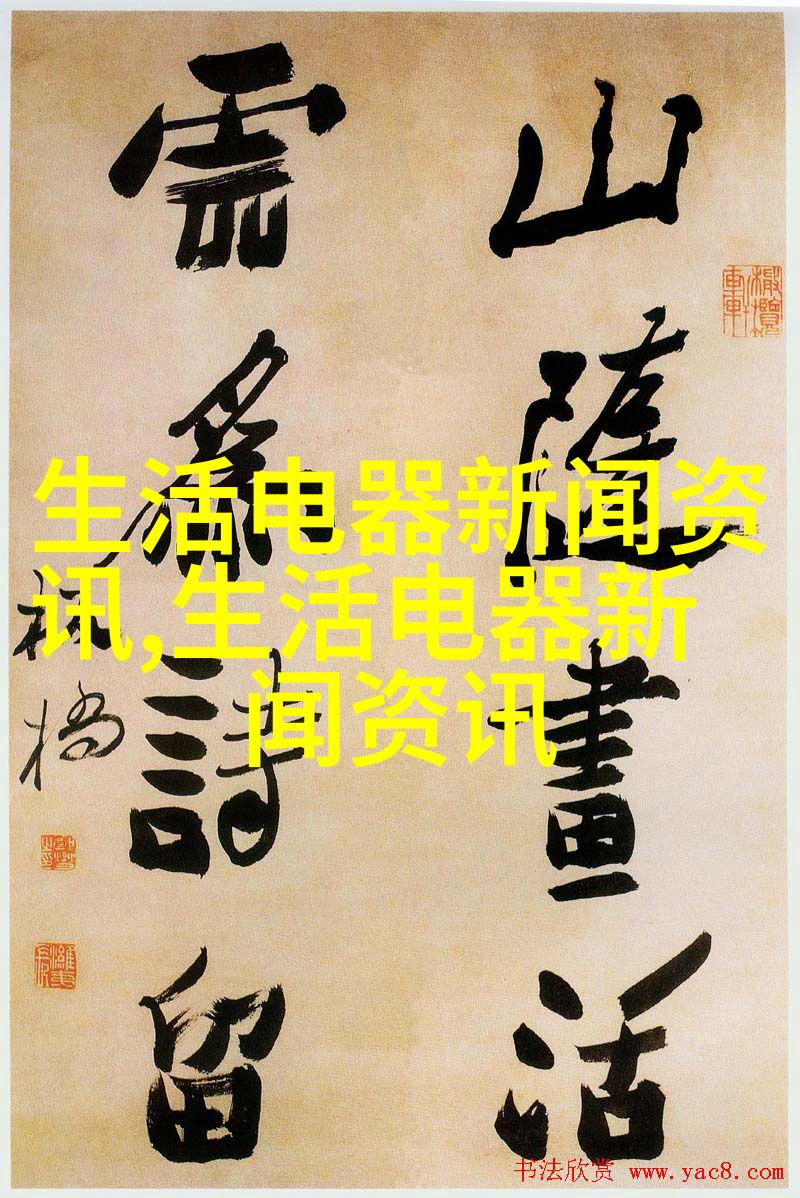 山隨畫活
雲爲詩留
板橋
生活电器新闻资
讯,生活电器新
闻资讯
书法欣赏 www.yac8.com